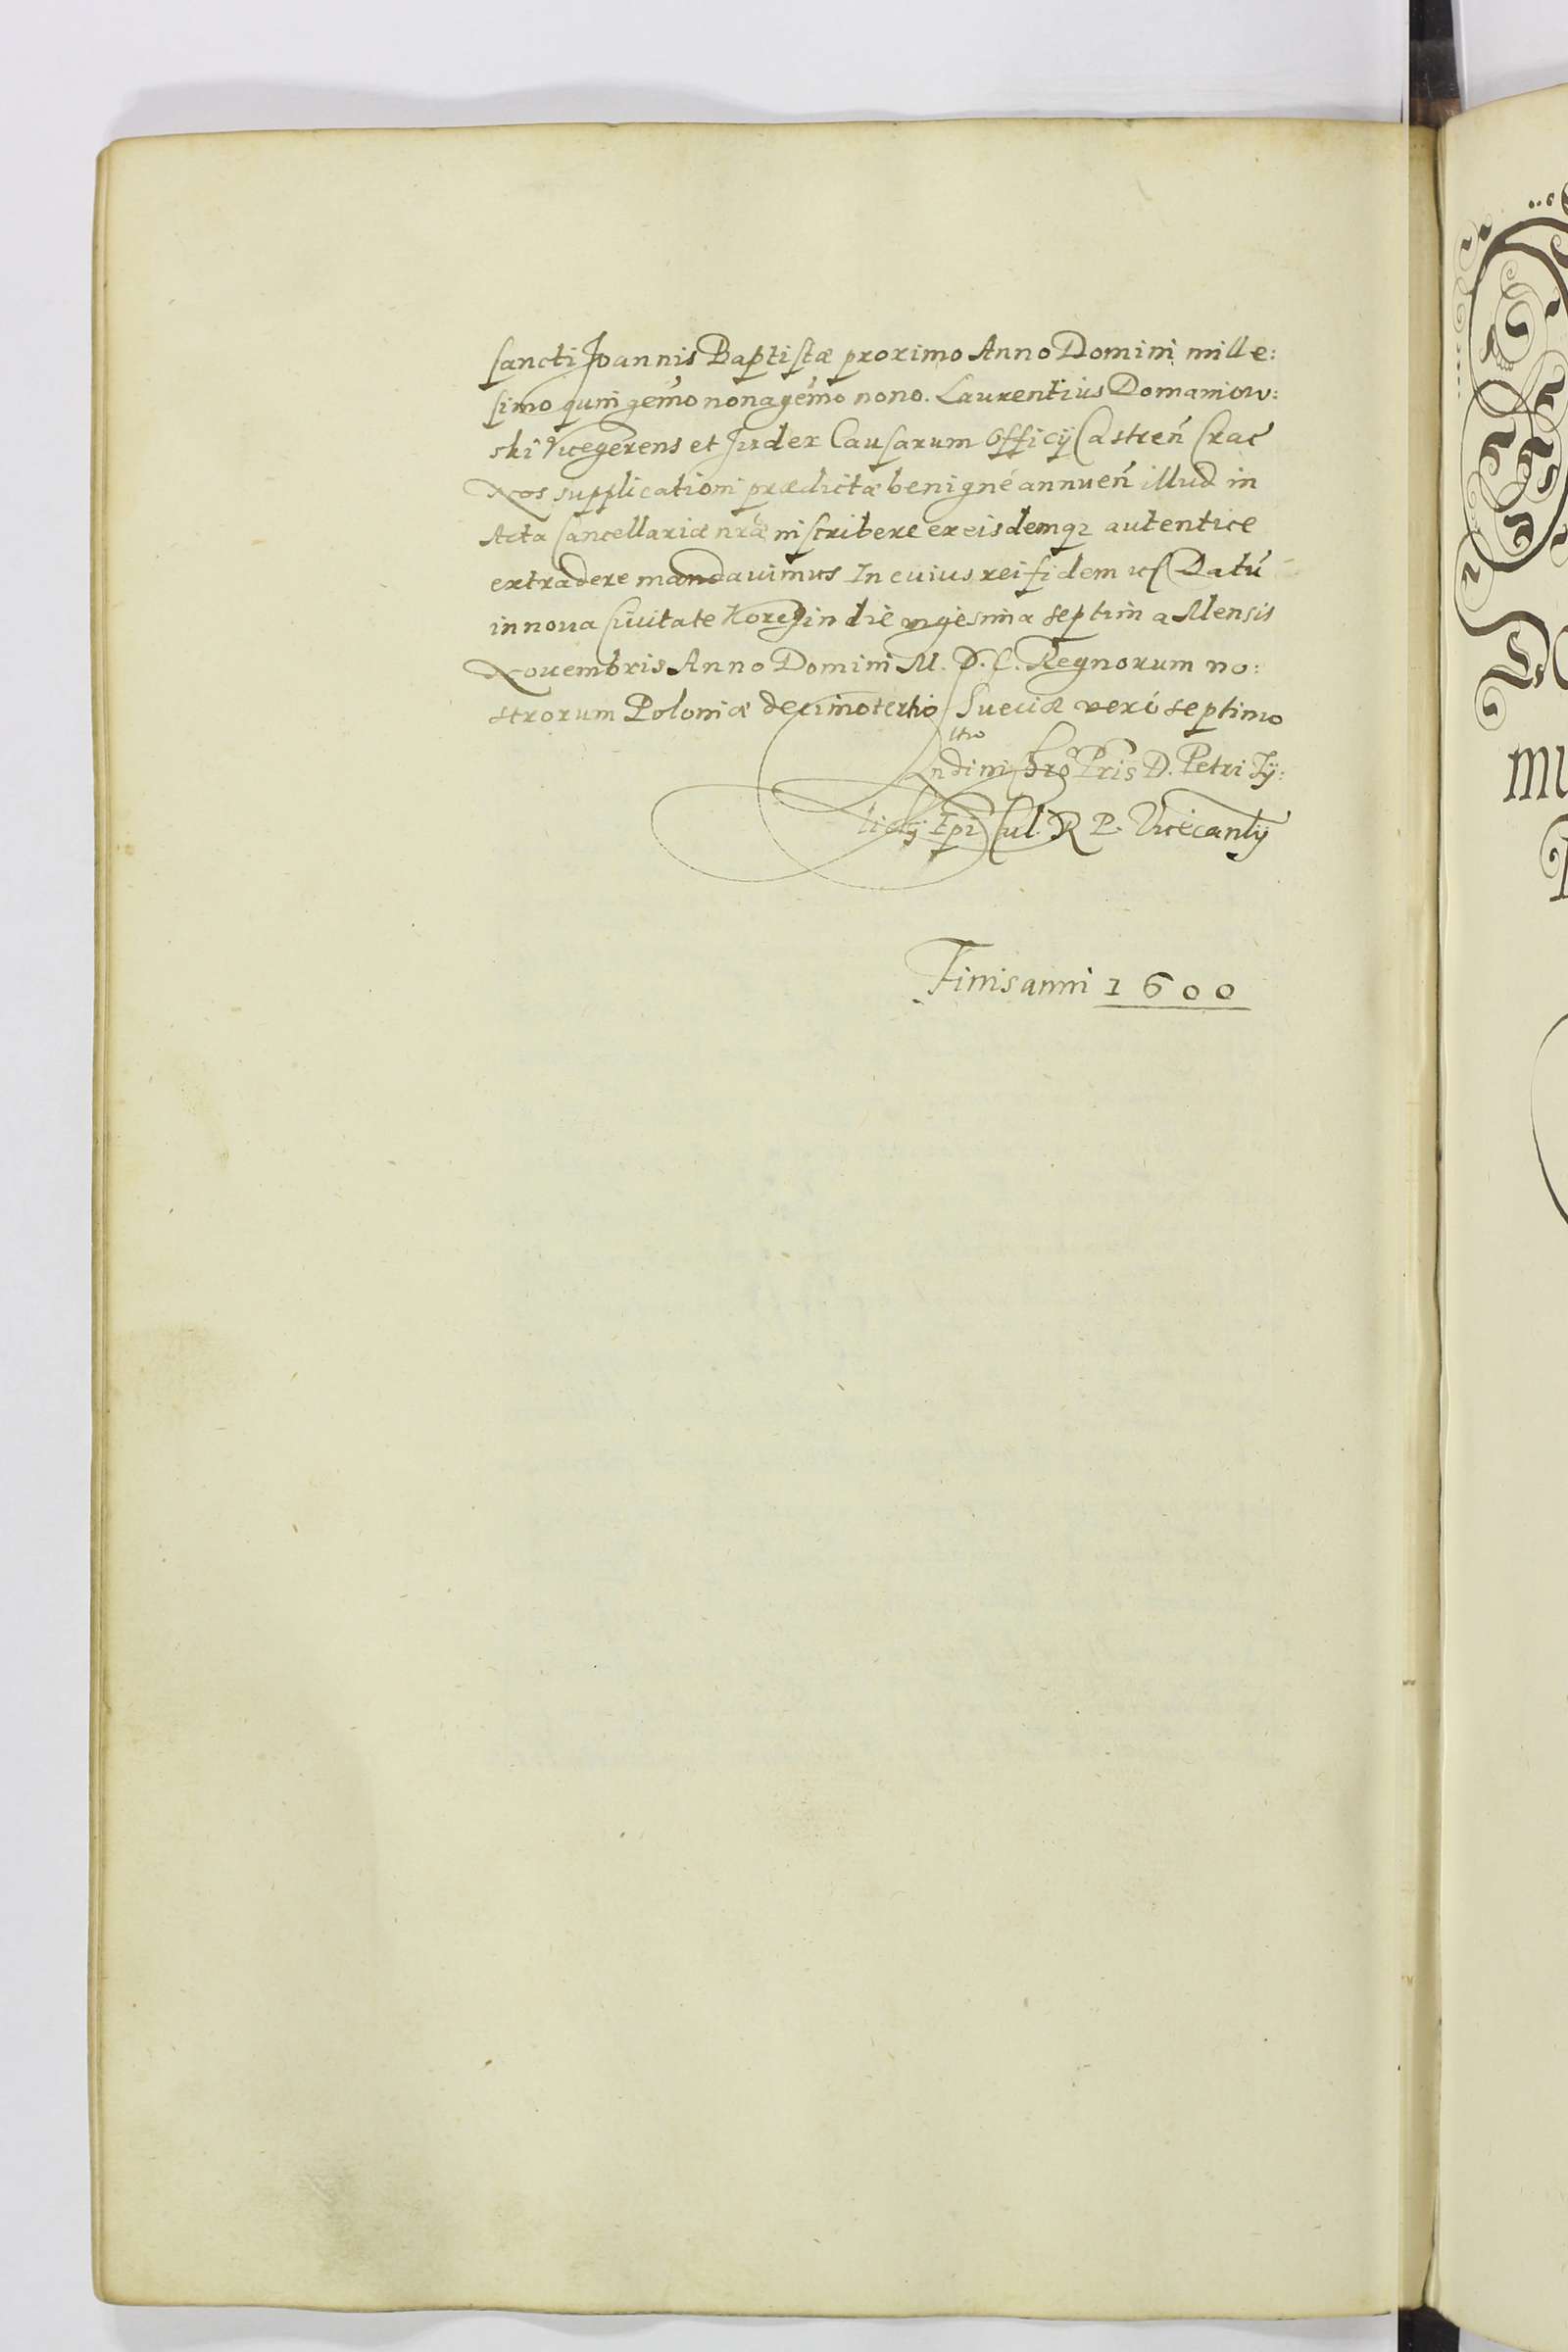 sancti Joannis Baptistæ proximo Anno Domini mille:
simo quingemo nonagemo nono. Laurentius Domaniow:
ski Vicegerens et Judex Causarum Officij Castren Crac
Nos supplicationi prædictæ benigné annuen illud in
Acta Cancellariæ nræ inscribere ex eisdemq3 autentice
extradere mandauimus In cuius rei fidem Datú
in noua Ciuitate Korczin die vigesima septima Mensis
Nouembris Anno Domini M. D. C. Regnorum no:
strorum Poloniæ decimotertio Sueciæ veró septimo
Pris D. Petri Ty:
licij Epi Cul. R P. Vicecanlij
Finis anni 1600